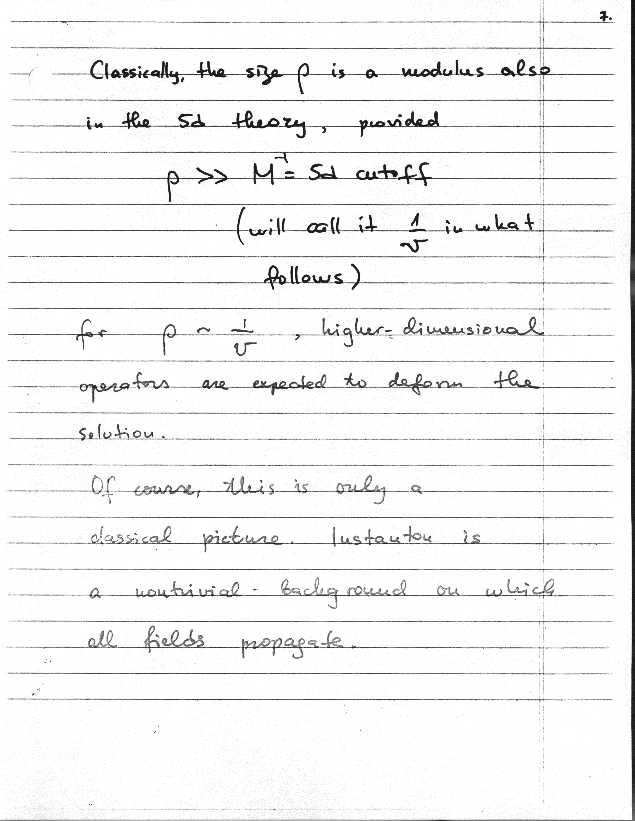 7.
Classically, the size ρ is a modulus also
in the 5d theory, provided
ρ >> M⁻¹ = 5d cutoff
(will call it 1/v in what
follows)
for ρ ~ 1/v, higher-dimensional
operators are expected to deform the
solution.
Of course, this is only a
classical picture. Instanton is
a nontrivial - background on which
all fields propagate.